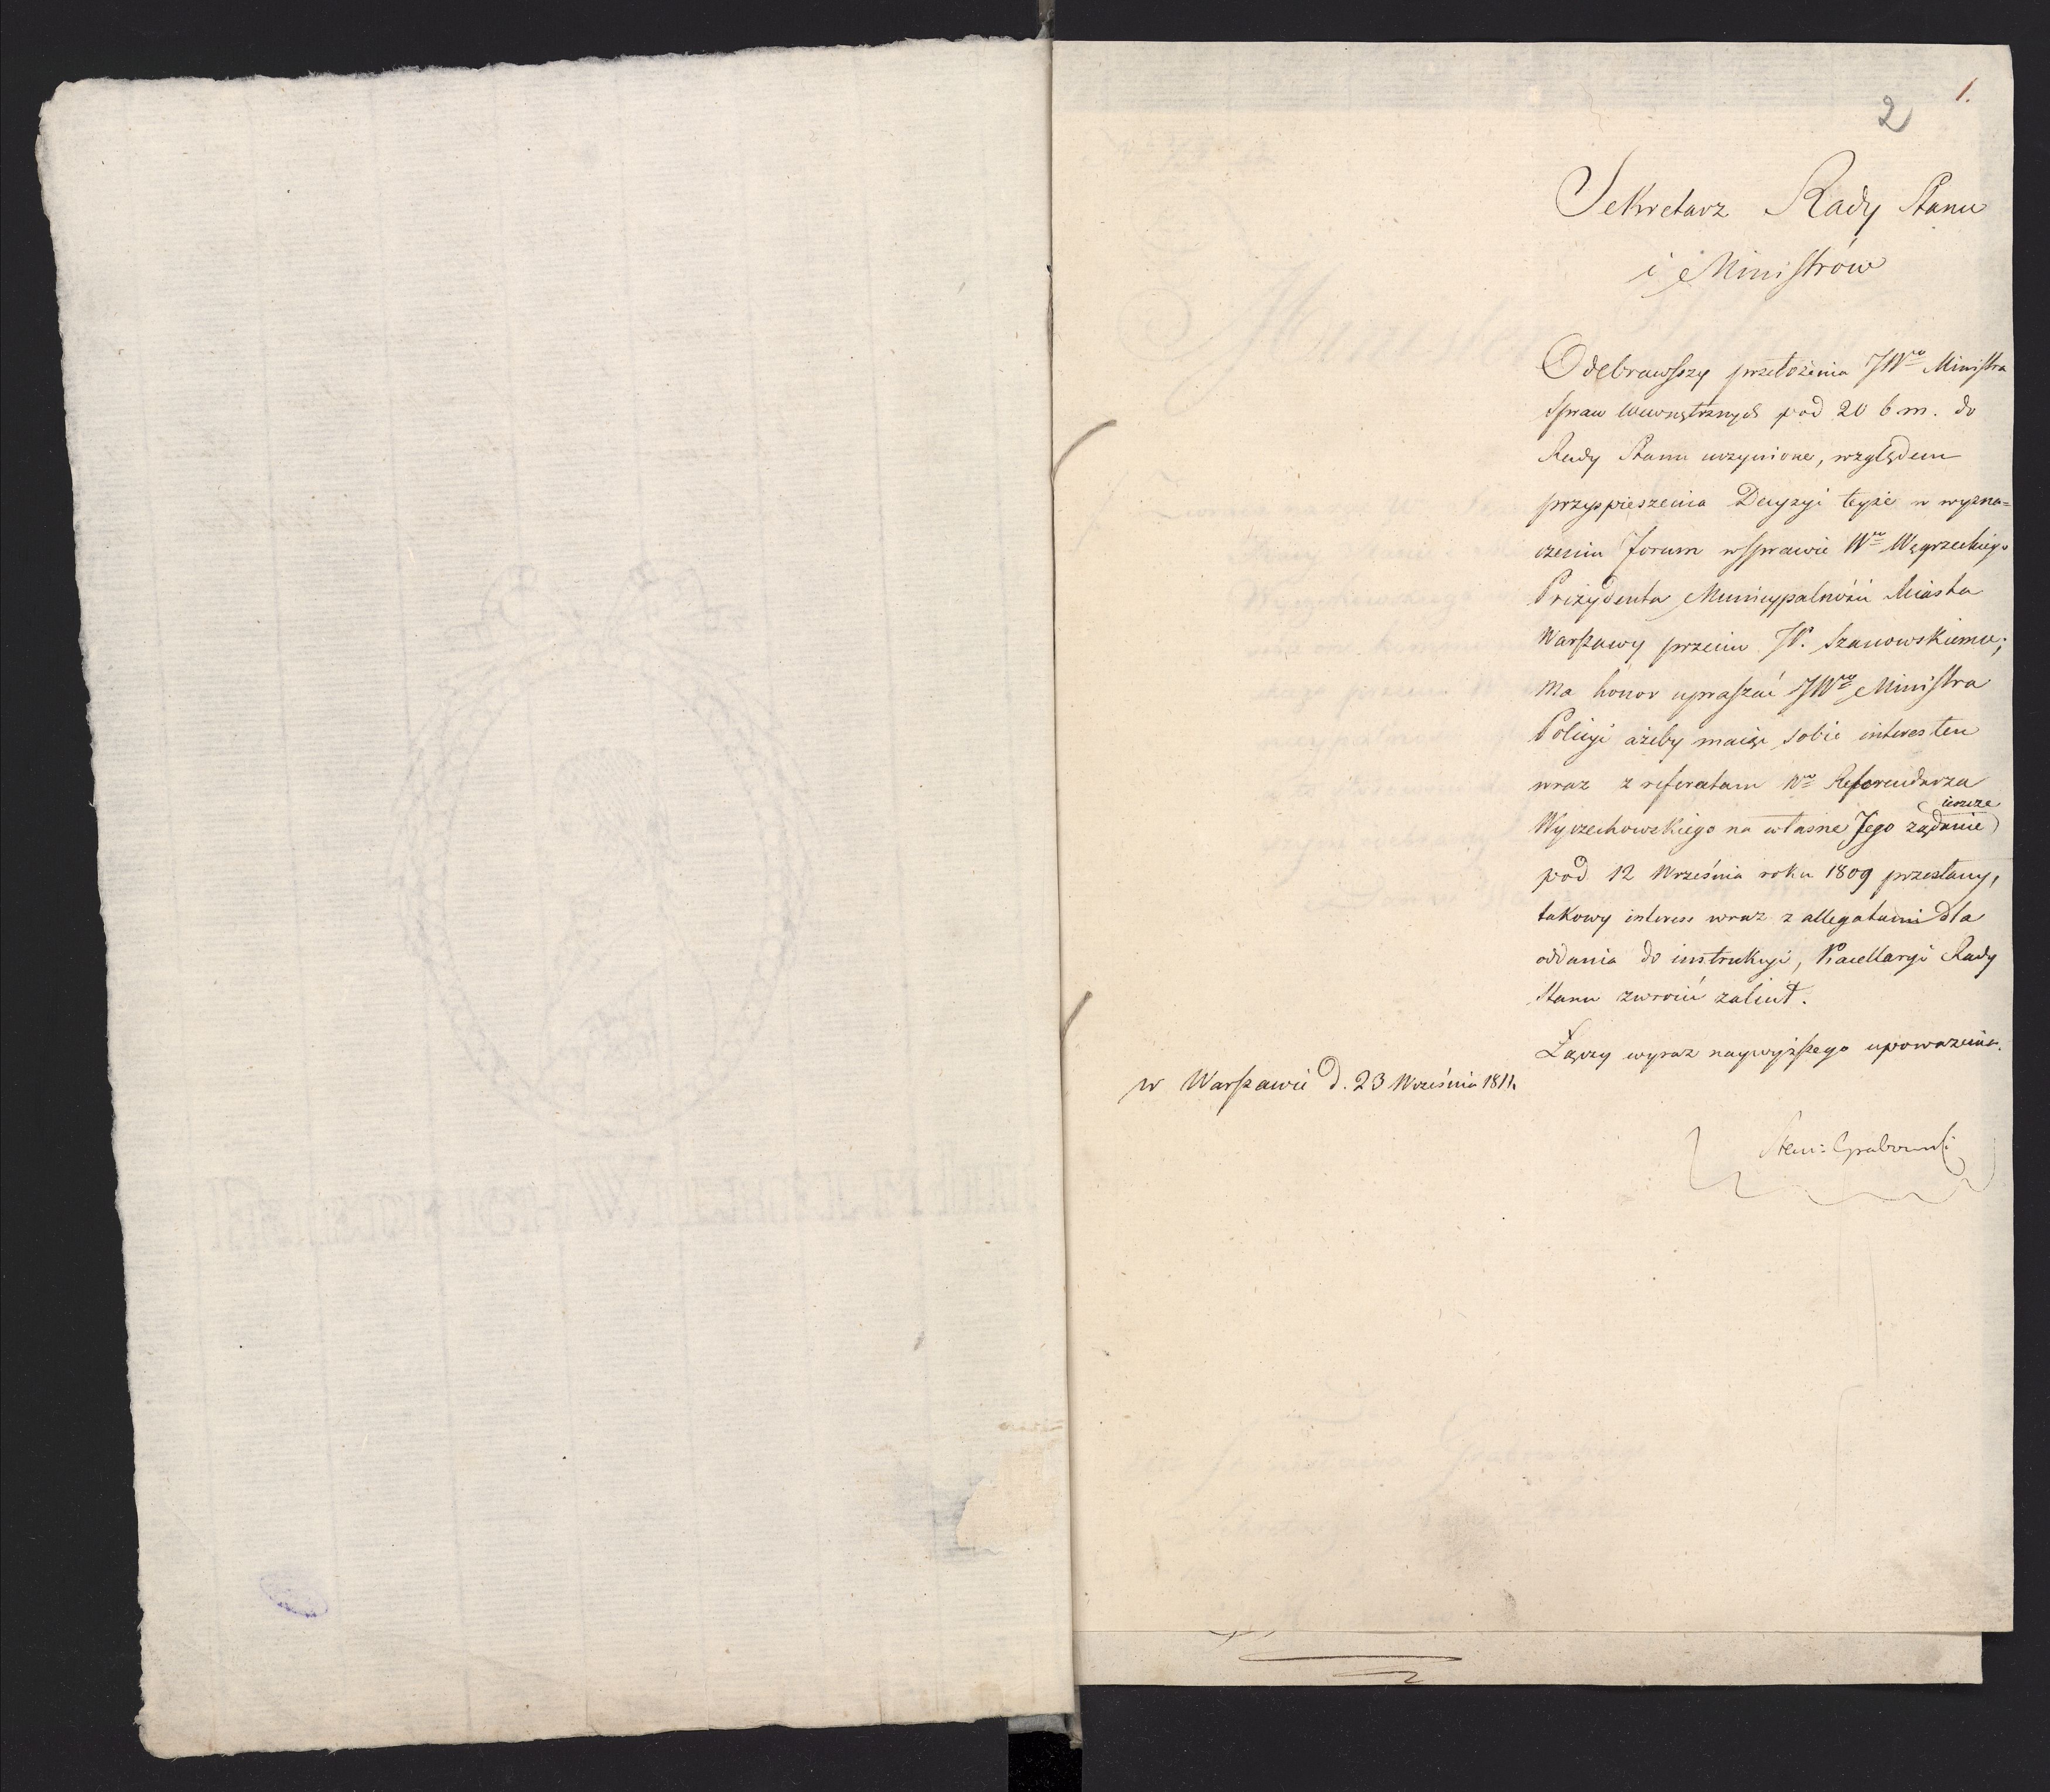 1.
2
Sekretarz Rady Stanu
i Ministrów
Odebrawszy przełożenia JWo Ministra
Spraw Wewnętrznych pod 20 b m. do
Rady Stanu uczynione, względem
przyspieszenia Decyzyi teyże w wyzna=
czeniu forum wsprawie Wo Węgrzeckiego
Prezydenta Municypalności Miasta
Warszawy przeciw JP. Szanowskiemu;
ma honor upraszać JWo Ministra
Policyi ażeby maiąc sobie interes ten
wraz z referatam Wo Referendarza
ieszcze
Wyczechowskiego na własne Jego żądanie
pod 12 Września roku 1809 przesłany,
takowy interess wraz z allegatami dla
oddania do instrukcyi, Kancellaryi Rady
Stanu zwrócić zalecił.
Łączy wyraz naywyższego upoważenia.
w Warszawie d. 23 Września 1811.
Stan: Grabowski